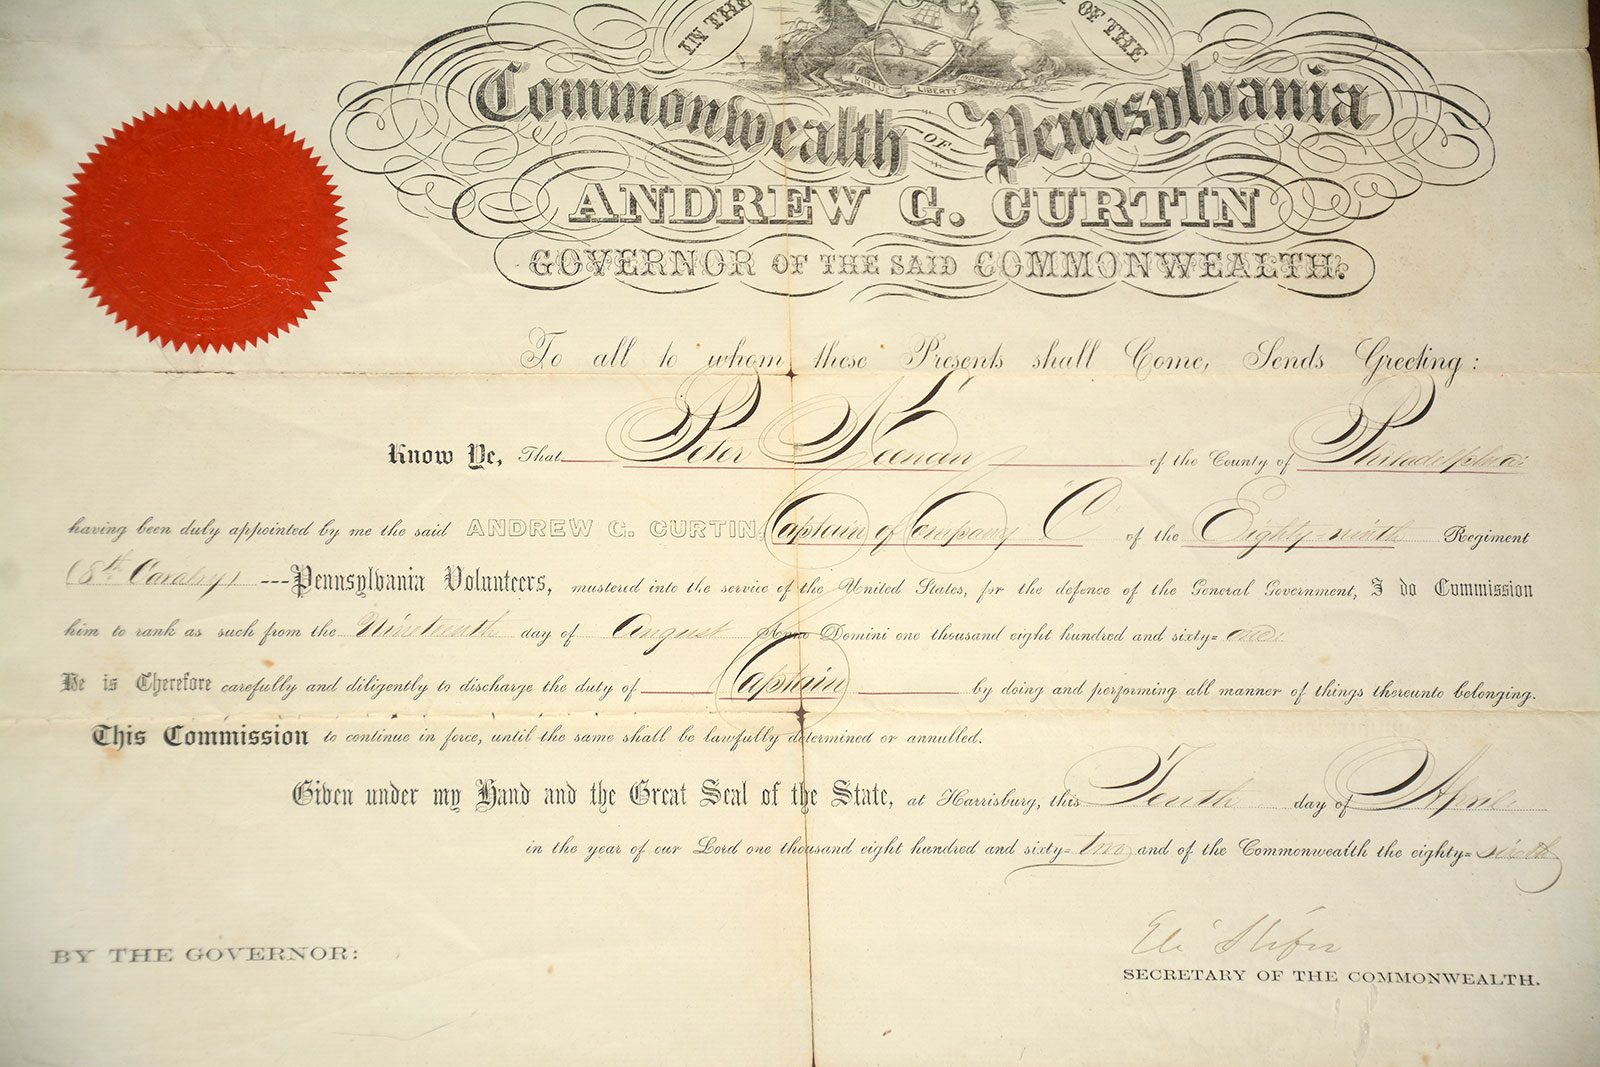 IN THE OF THE
VIRTUE LIBERTY INDEPENDENCE
Commonwealth OF Pennsylvania
ANDREW G. CURTIN
GOVERNOR OF THE SAID COMMONWEALTH.
To all to whom these Presents shall Come, Sends Greeting:
Know Ye, That Peter Keenan of the County of Philadelphia
having been duly appointed by me the said ANDREW G. CURTIN, Captain of Company "C" of the Eighty-ninth Regiment
(8th Cavalry) ---Pennsylvania Volunteers, mustered into the service of the United States, for the defence of the General Government, I do Commission
him to rank as such from the Nineteenth day of August Anno Domini one thousand eight hundred and sixty=one.
He is Therefore carefully and diligently to discharge the duty of Captain by doing and performing all manner of things thereunto belonging.
This Commission to continue in force, until the same shall be lawfully determined or annulled.
Given under my Hand and the Great Seal of the State, at Harrisburg, this Tenth day of April
in the year of our Lord one thousand eight hundred and sixty=two and of the Commonwealth the eighty=sixth
Eli Slifer
BY THE GOVERNOR:
SECRETARY OF THE COMMONWEALTH.